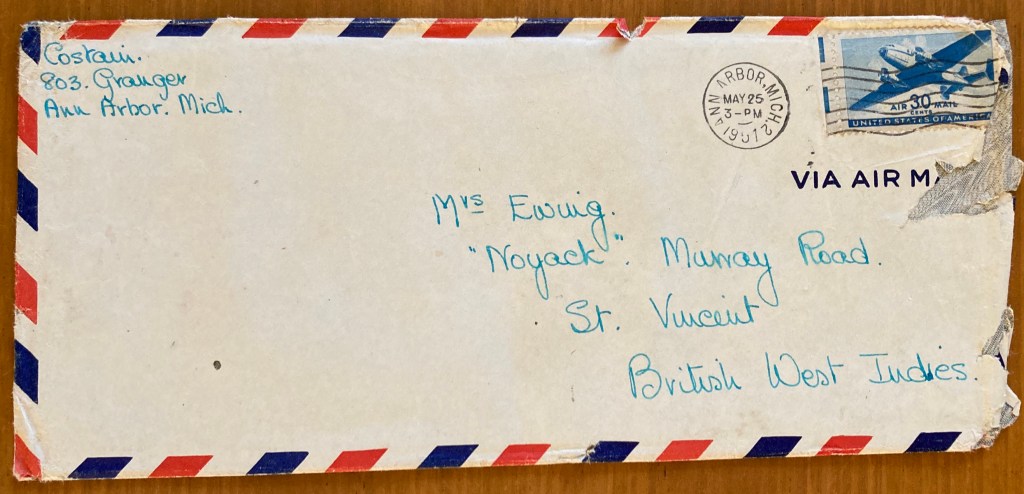 Costain.
803. Granger
Ann Arbor. Mich.
ANN ARBOR, MICH. 2
MAY 25
3-PM
AIR 30 MAIL
CENTS
UNITED STATES OF AMERICA
VIA AIR
Mrs Ewing.
"Noyack". Murray Road.
St. Vincent
British West Indies.